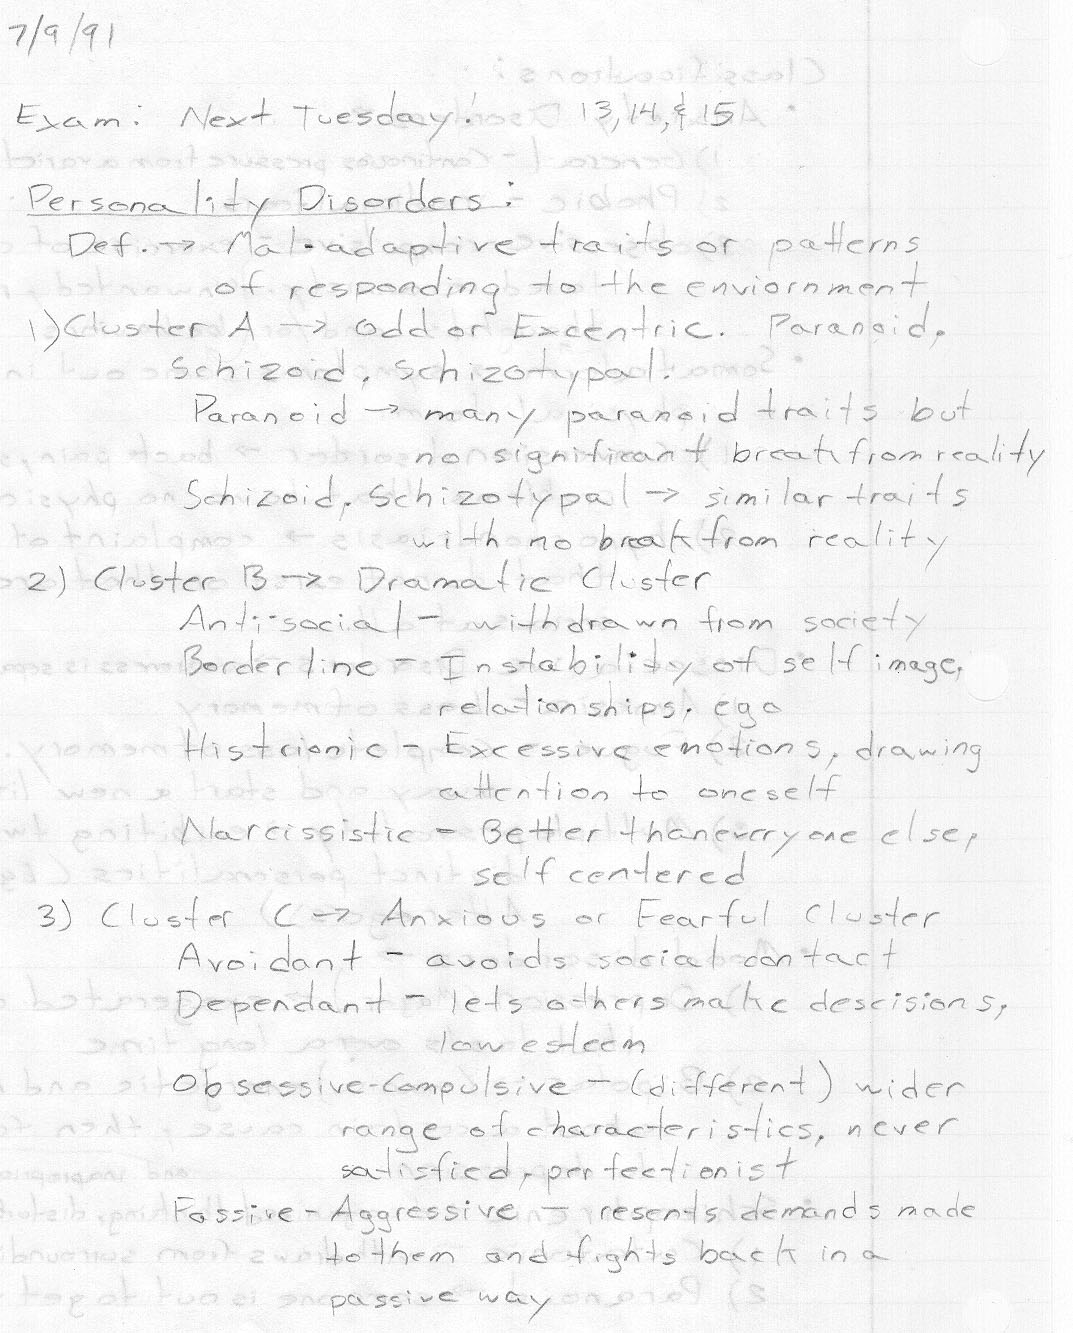 7/9/91
Exam: Next Tuesday! 13,14,& 15
Personality Disorders:
Def. → Mal-adaptive traits or patterns
of responding to the enviornment
1) Cluster A → Odd or Excentric. Paranoid,
Schizoid, Schizotypal.
Paranoid → many paranoid traits but
no significant break from reality
Schizoid, Schizotypal → similar traits
with no break from reality
2) Cluster B → Dramatic Cluster
Anti-social - withdrawn from society
Borderline - Instability of self image,
relationships, ego
Histrionic - Excessive emotions, drawing
attention to oneself
Narcissistic - Better than everyone else,
self centered
3) Cluster C → Anxious or Fearful Cluster
Avoidant - avoids social contact
Dependant - lets others make descisions,
low esteem
Obsessive-Compulsive - (different) wider
range of characteristics, never
satisfied, perfectionist
Passive-Aggressive - resents demands made
to them and fights back in a
passive way